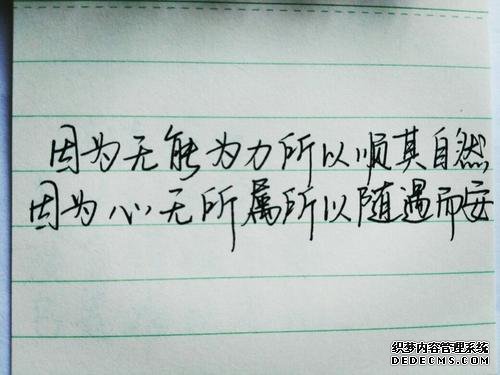 因为无能为力所以顺其自然
因为心无所属所以随遇而安
织梦内容管理系统
DEDECMS.COM